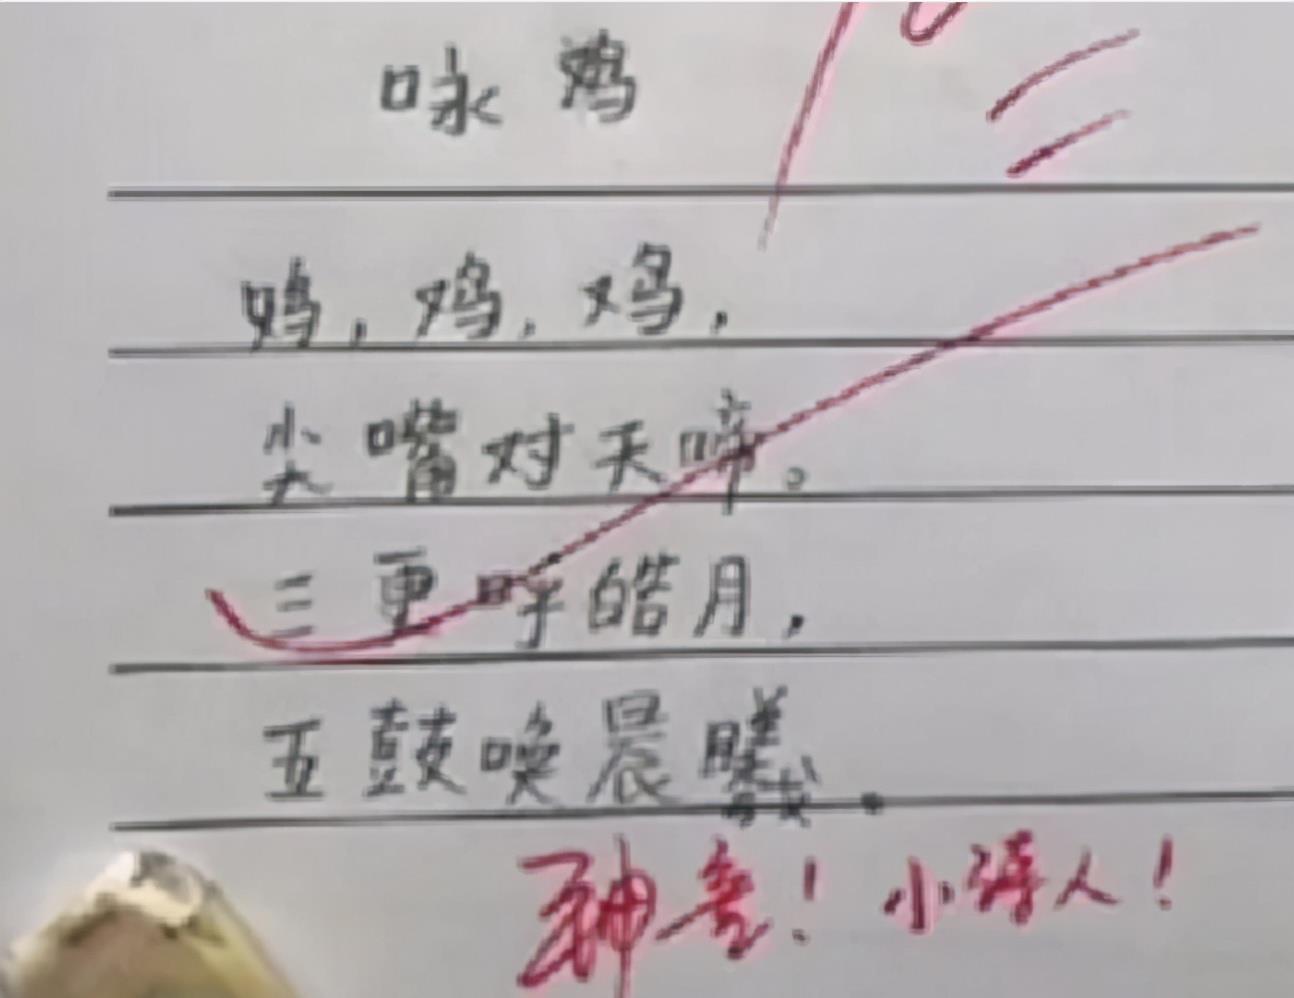 咏鸡
鸡，鸡，鸡，
尖嘴对天啼。
三更呼皓月，
五鼓唤晨曦。
神奇！小诗人！